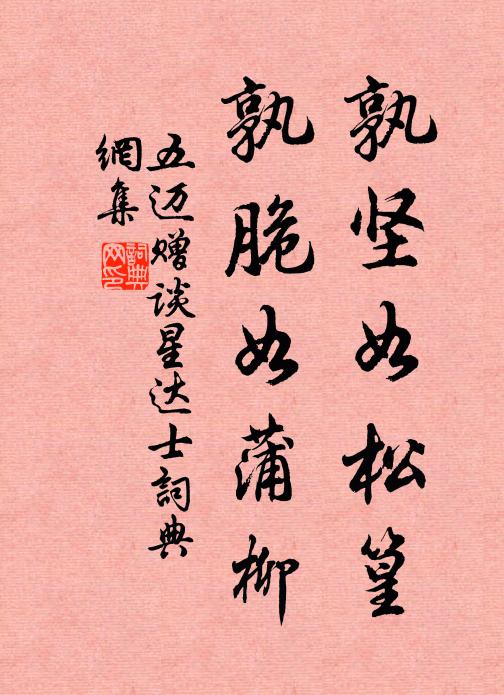 孰坚如松篁
孰脆如蒲柳
五迈赠谈星达士詞典
網集
詞典
网印